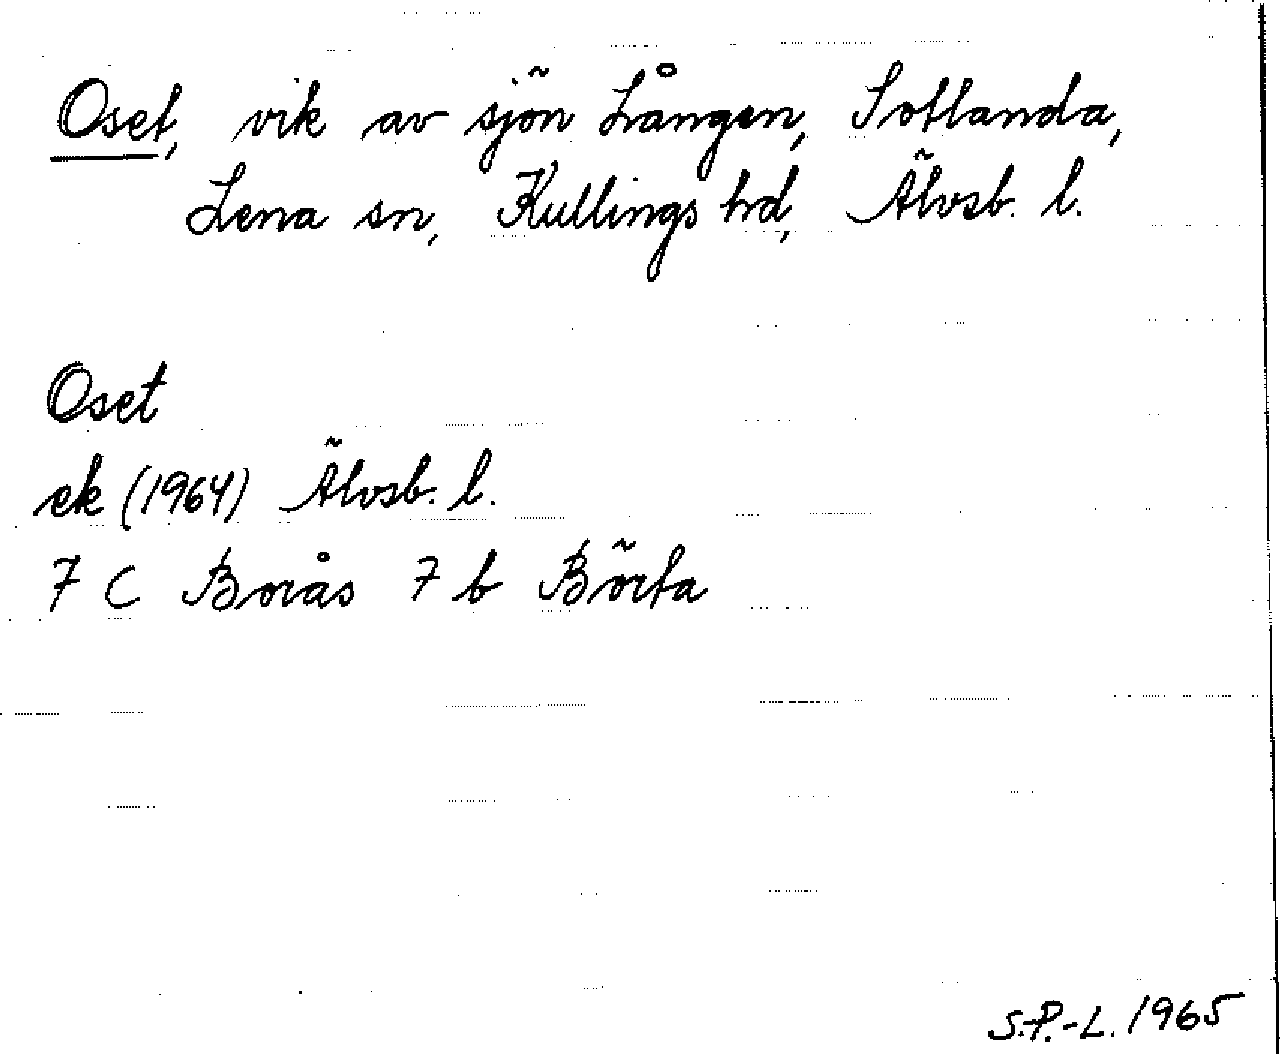 Oset, vik av sjön Lången, Sotlanda,
Lena sn, Kullings hd, Älvsb. l.
Oset
ek (1964) Älvsb. l.
7 C Borås 7 b Börta
S.P.-L. 1965